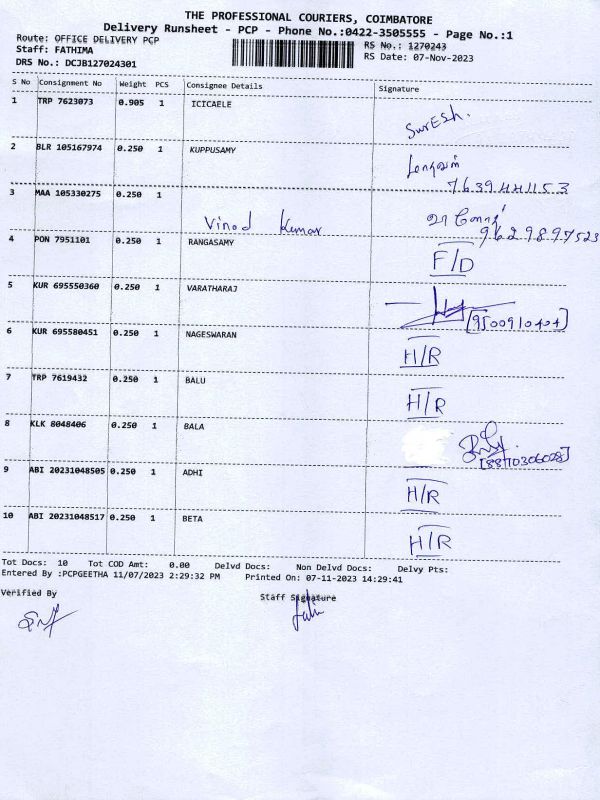 THE PROFESSIONAL COURIERS, COIMBATORE
Delivery Runsheet - PCP - Phone No.:0422-3505555 - Page No.:1
Route: OFFICE DELIVERY PCP
RS No.: 1270243
Staff: FATHIMA
RS Date: 07-Nov-2023
DRS No.: DCJB127024301
S No Consignment No Weight PCS Consignee Details Signature
1 TRP 7623073 0.905 1 ICICAELE
SurESh.
2 BLR 105167974 0.250 1 KUPPUSAMY
7639441153
3 MAA 105330275 0.250 1
Vinod Kumar
9629897523
4 PON 7951101 0.250 1 RANGASAMY
F/D
5 KUR 695550360 0.250 1 VARATHARAJ
[9500910404]
6 KUR 695580451 0.250 1 NAGESWARAN
H/R
7 TRP 7619432 0.250 1 BALU
H/R
8 KLK 8048406 0.250 1 BALA
9 ABI 20231048505 0.250 1 ADHI
H/R
10 ABI 20231048517 0.250 1 BETA
H/R
Tot Docs: 10 Tot COD Amt: 0.00 Delvd Docs: Non Delvd Docs: Delvy Pts:
Entered By :PCPGEETHA 11/07/2023 2:29:32 PM Printed On: 07-11-2023 14:29:41
Verified By Staff Signature